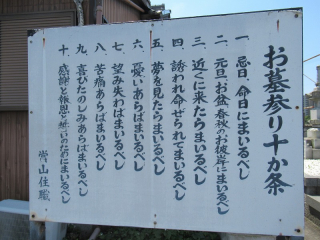 お墓参り十か条
一、忌日、命日にまいるべし
二、元旦、お盆、春秋のお彼岸にまいるべし
三、近くに来たらまいるべし
四、誘われ命ぜられてまいるべし
五、夢を見たらまいるべし
六、憂いあらばまいるべし
七、望み失わばまいるべし
八、苦痛あらばまいるべし
九、喜びたのしみあらばまいるべし
十、感謝と報恩と誓いのためにまいるべし
当山住職